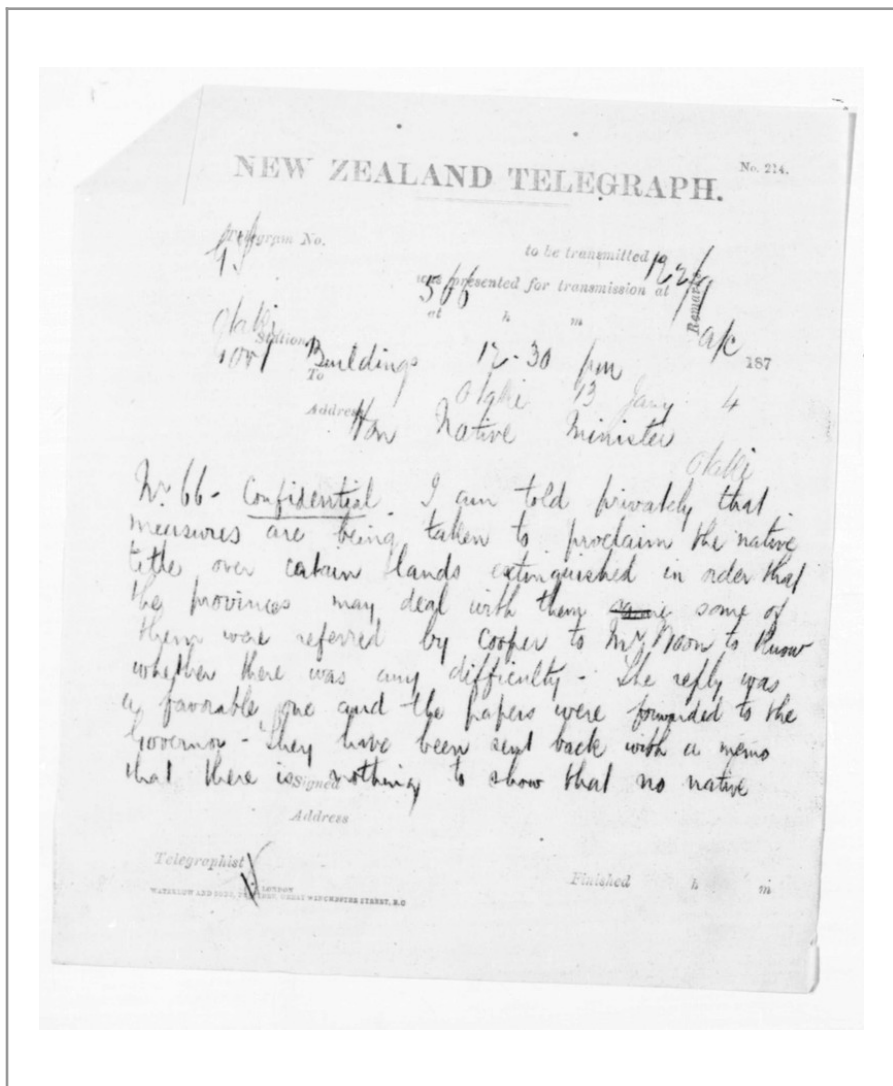 NEW ZEALAND TELEGRAPH.
No. 214.
Telegram No.
to be transmitted
was presented for transmission at
566
at h m
Remarks
Otaki
Station
a/c
Govt Buildings 12-30 pm
187
To
Otaki 13 Jany 4
Address
Hon Native Minister
Otaki
Mr. 66 - Confidential. I am told privately that
measures are being taken to proclaim the native
title over certain lands extinguished in order that
the provinces may deal with them some of
them were referred by Cooper to Mr. to know
whether there was any difficulty - The reply was
a favorable one and the papers were forwarded to the
Governor - They have been sent back with a memo
that there is nothing to show that no native
Signed
Address
Telegraphist
Finished h m
WATERLOW AND SONS, GREAT WINCHESTER STREET, E.C
LONDON